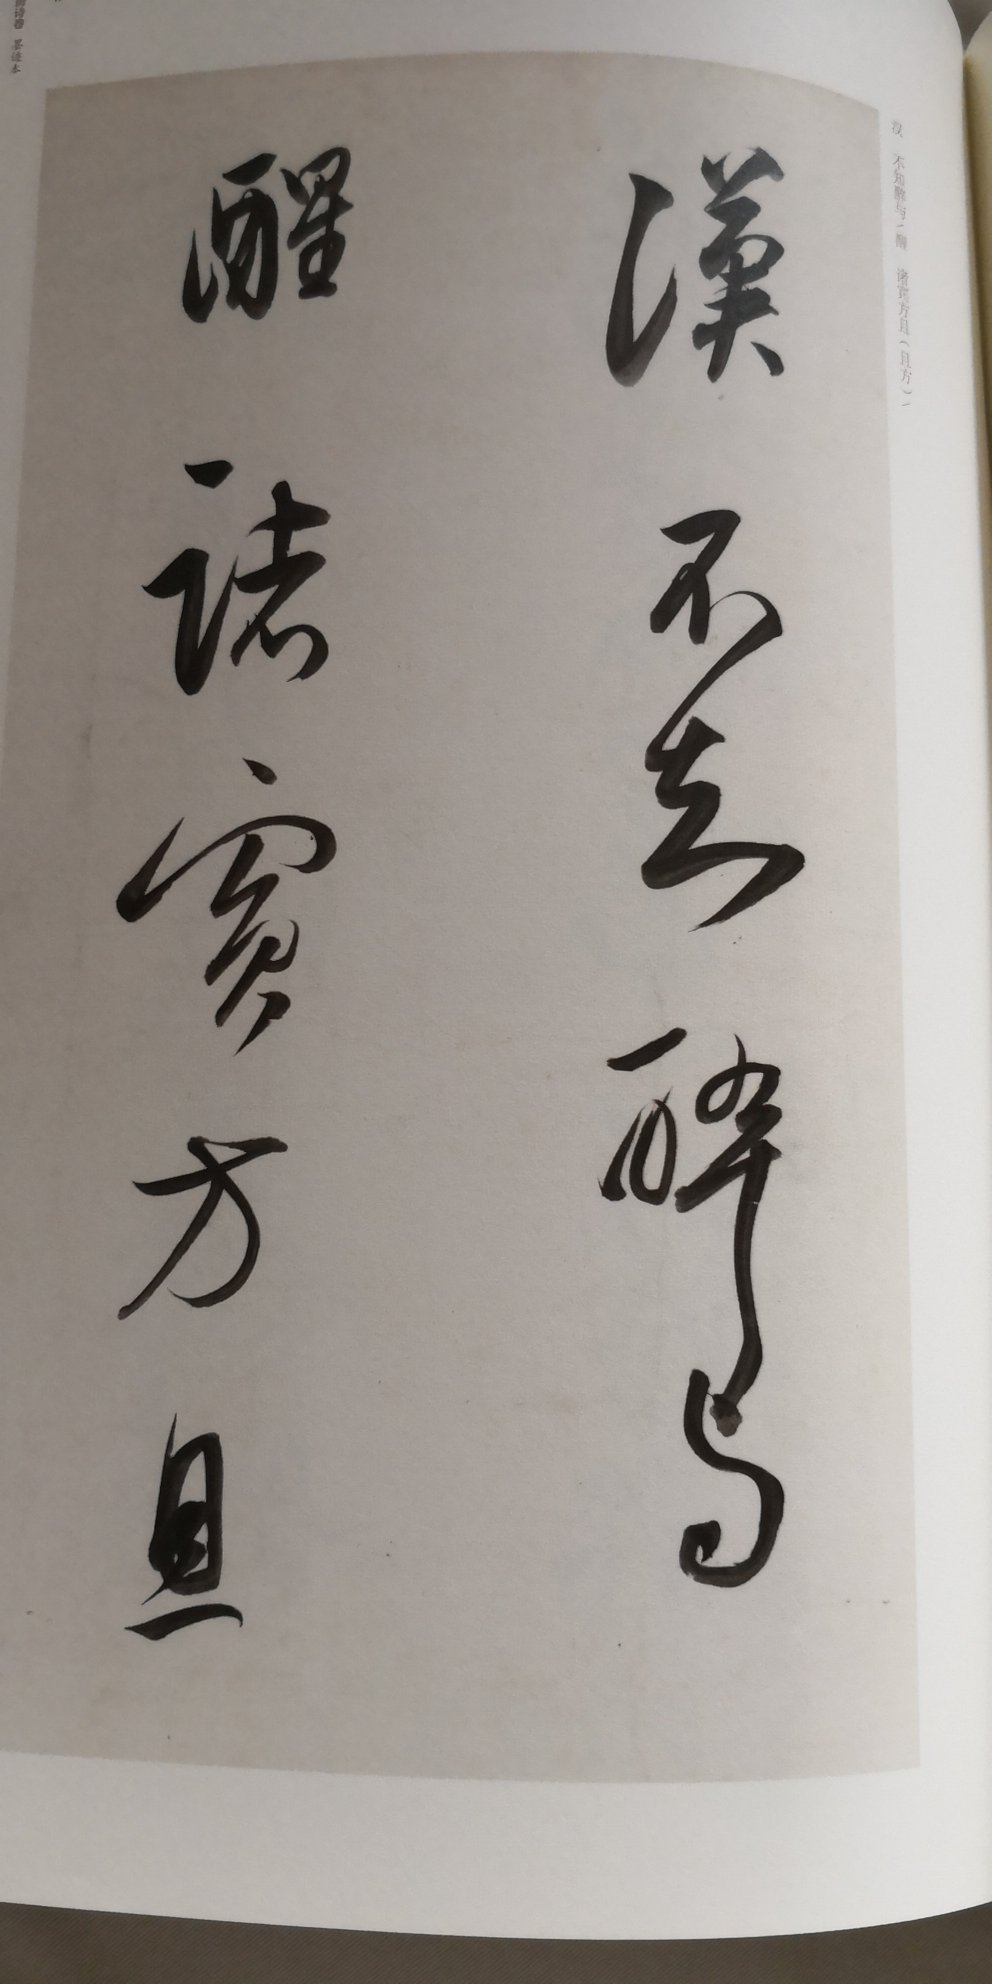 漢不知醉与
醒諸賓方且
汉 不知醉与/醒 诸宾方且(且方)/
诗卷 墨迹本